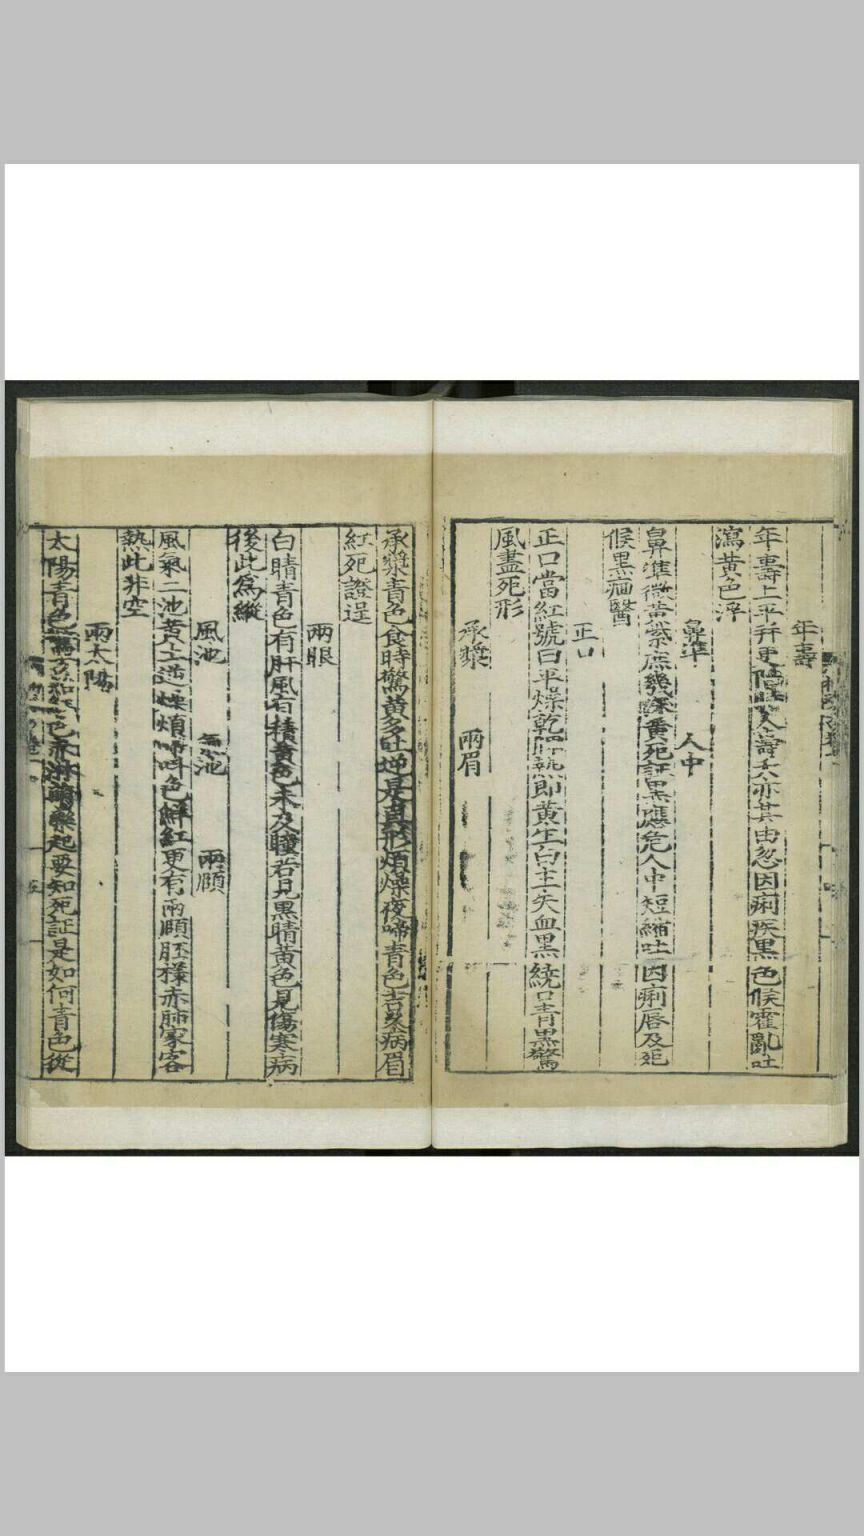 年壽
年壽上平并更陷
人壽夭亦其由忽因痢疾黑色候霍亂吐
瀉黃色滓
鼻準 人中
鼻準微黃紫庶幾深黃死証黑應危人中短縮吐因痢唇反死
候黑痼醫
正口
正口當紅號曰平燥乾脾熱即黃生白主失血黑繞口青黑驚
風盡死形
承漿 兩眉
承漿青色食時驚黃多吐逆是真形煩燥夜啼青色吉久病眉
紅死證逞
兩眼
白睛青色有肝風有積黃色未及瞳若見黑睛黃色見傷寒病
後此爲縱
風池 氣池 兩頤
風氣二池黃土逆燥煩啼叫色鮮紅更有兩頤胚樣赤肺家客
熱此非空
兩太陽
太陽青色
色
淋萌孽起要知死証是如何青色從